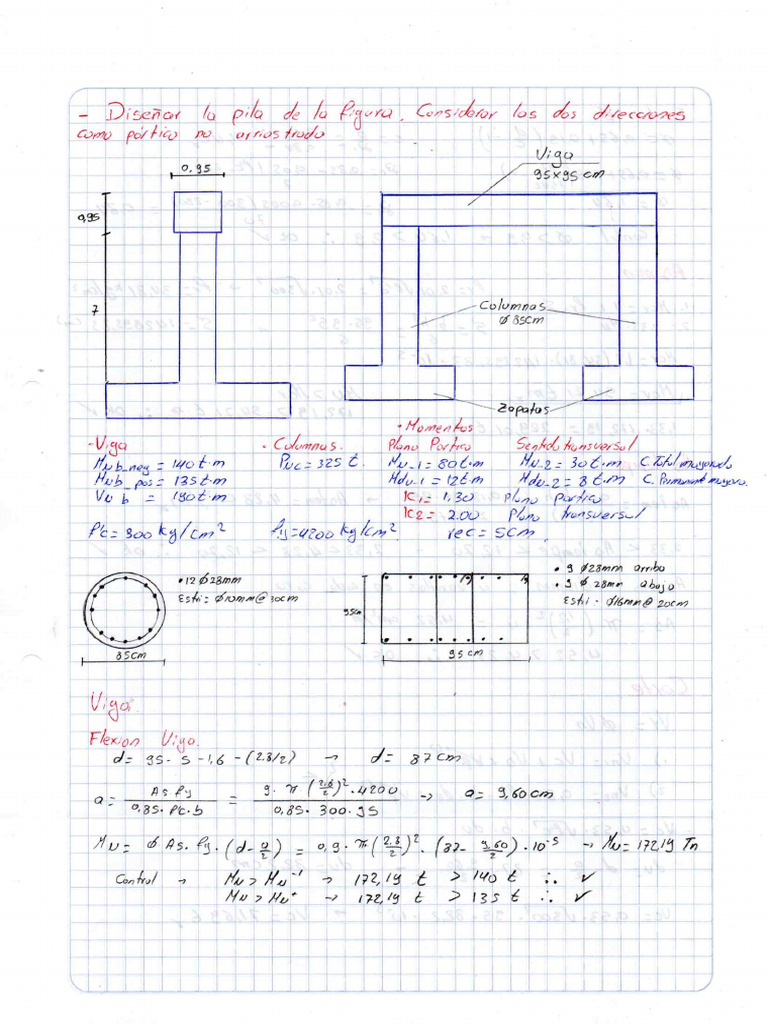 - Diseñar la pila de la figura. Considerar las dos direcciones
como pórtico no arriostrado
Viga
95x95 cm
0.95
0,95
7
Columnas
Ø 85cm
Zapatas
- Viga
Mub_neg = 140 t·m
Mub_pos = 135 t·m
Vub = 190 t·m
· Columnas.
Puc = 325 t.
· Momentos
Plano Portico
Mu-1 = 80 t·m
Mdu-1 = 12 t·m
Sentido transversal
Mu-2 = 30 t·m C. Total mayorada
Mdu-2 = 8 t·m C. Permanent mayora.
K1 = 1,30 Plano Portico
K2 = 2.00 Plano transversal
f'c = 300 kg/cm² fy = 4200 kg/cm² rec = 5cm.
• 12 Ø 28mm
Estri = Ø10mm@30cm
85cm
95cm
95 cm
• 9 Ø28mm arriba
• 9 Ø 28mm abajo
Estri - Ø16mm@20cm
Viga:
Flexion Viga.
d = 95 - 5 - 1,6 - (2.8/2) → d = 87 cm
a = As.fy / 0,85.f'c.b = 9.π(2.8/2)².4200 / 0,85.300.95 → a = 9,60 cm
Mu = Ø As.fy.(d - a/2) = 0,9.π(2.8/2)².(87 - 9,60/2).10⁻⁵ → Mu = 172,19 Tn
Control → Mu > Mu⁻¹ → 172,19 t > 140 t ∴ ✓
Mu > Mu⁺ → 172,19 t > 135 t ∴ ✓